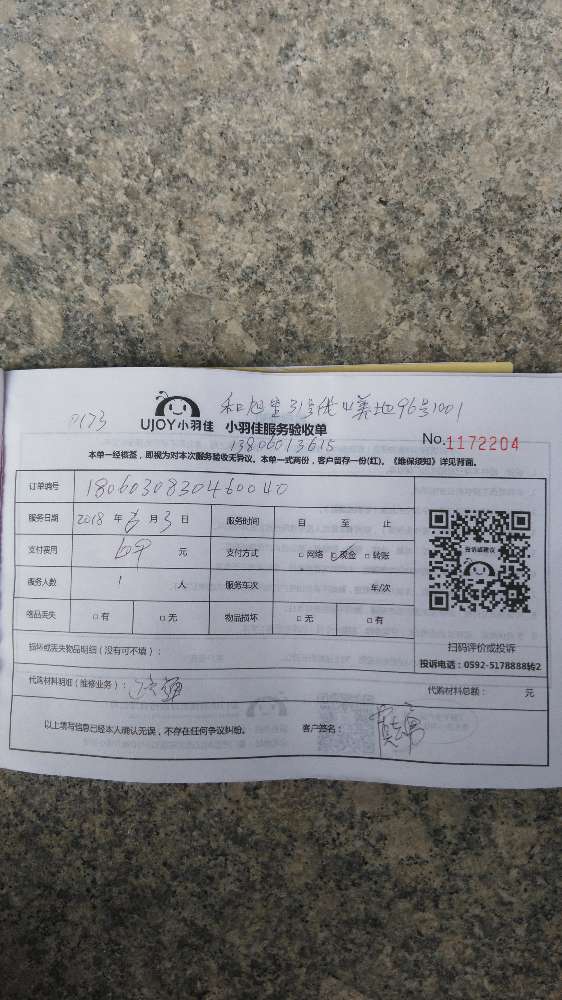 0173
UJOY小羽佳 小羽佳服务验收单
96号1001
13806013615
No.1172204
本单一经核签，即视为对本次服务验收无异议。本单一式两份，客户留存一份(红)。《维保须知》详见背面。
订单编号 1806030830460040
服务日期 2018 年 6 月 3 日 服务时间 自 至 止
支付费用 69 元 支付方式 □网络 □现金 □转账
服务人数 1 人 服务车次 年/次
物品丢失 □有 □无 物品损坏 □无 □有
投诉或建议
扫码评价或投诉
投诉电话：0592-5178888转2
损坏或丢失物品明细（没有可不填）：
代购材料明细（维修业务）： 代购材料总额： 元
以上填写信息已经本人确认无误，不存在任何争议纠纷。 客户签名：